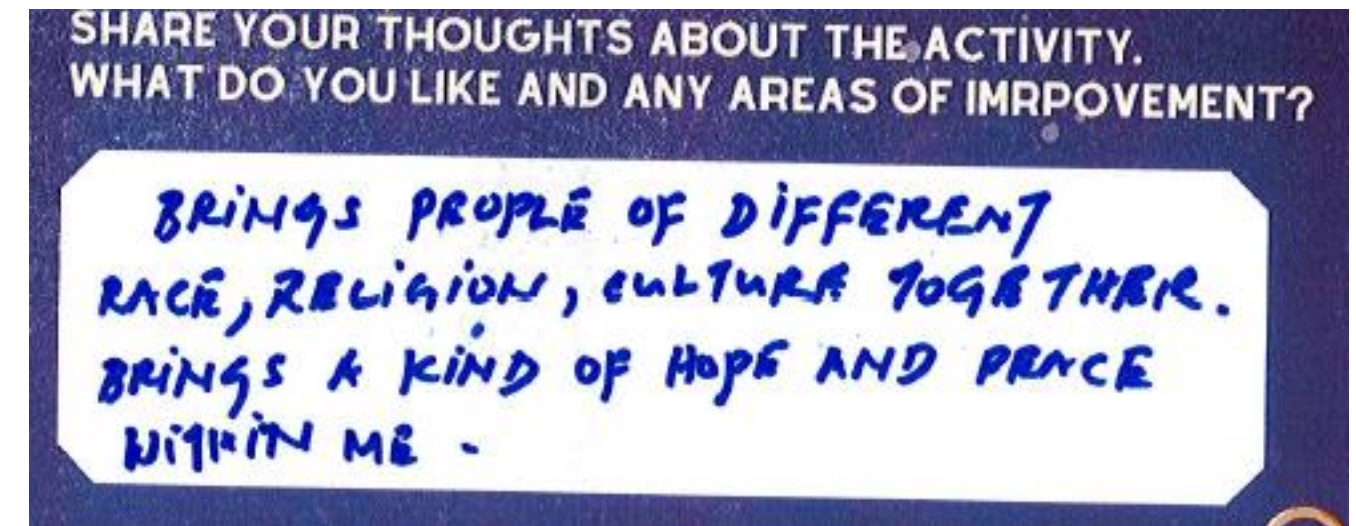 SHARE YOUR THOUGHTS ABOUT THE ACTIVITY.
WHAT DO YOU LIKE AND ANY AREAS OF IMRPOVEMENT?
BRiNGS PEOPLE OF DiFFERENT
RACE, RELiGiON, CULTURE TOGETHER.
BRiNGS A KiND OF HOPE AND PEACE
WiTHiN ME -